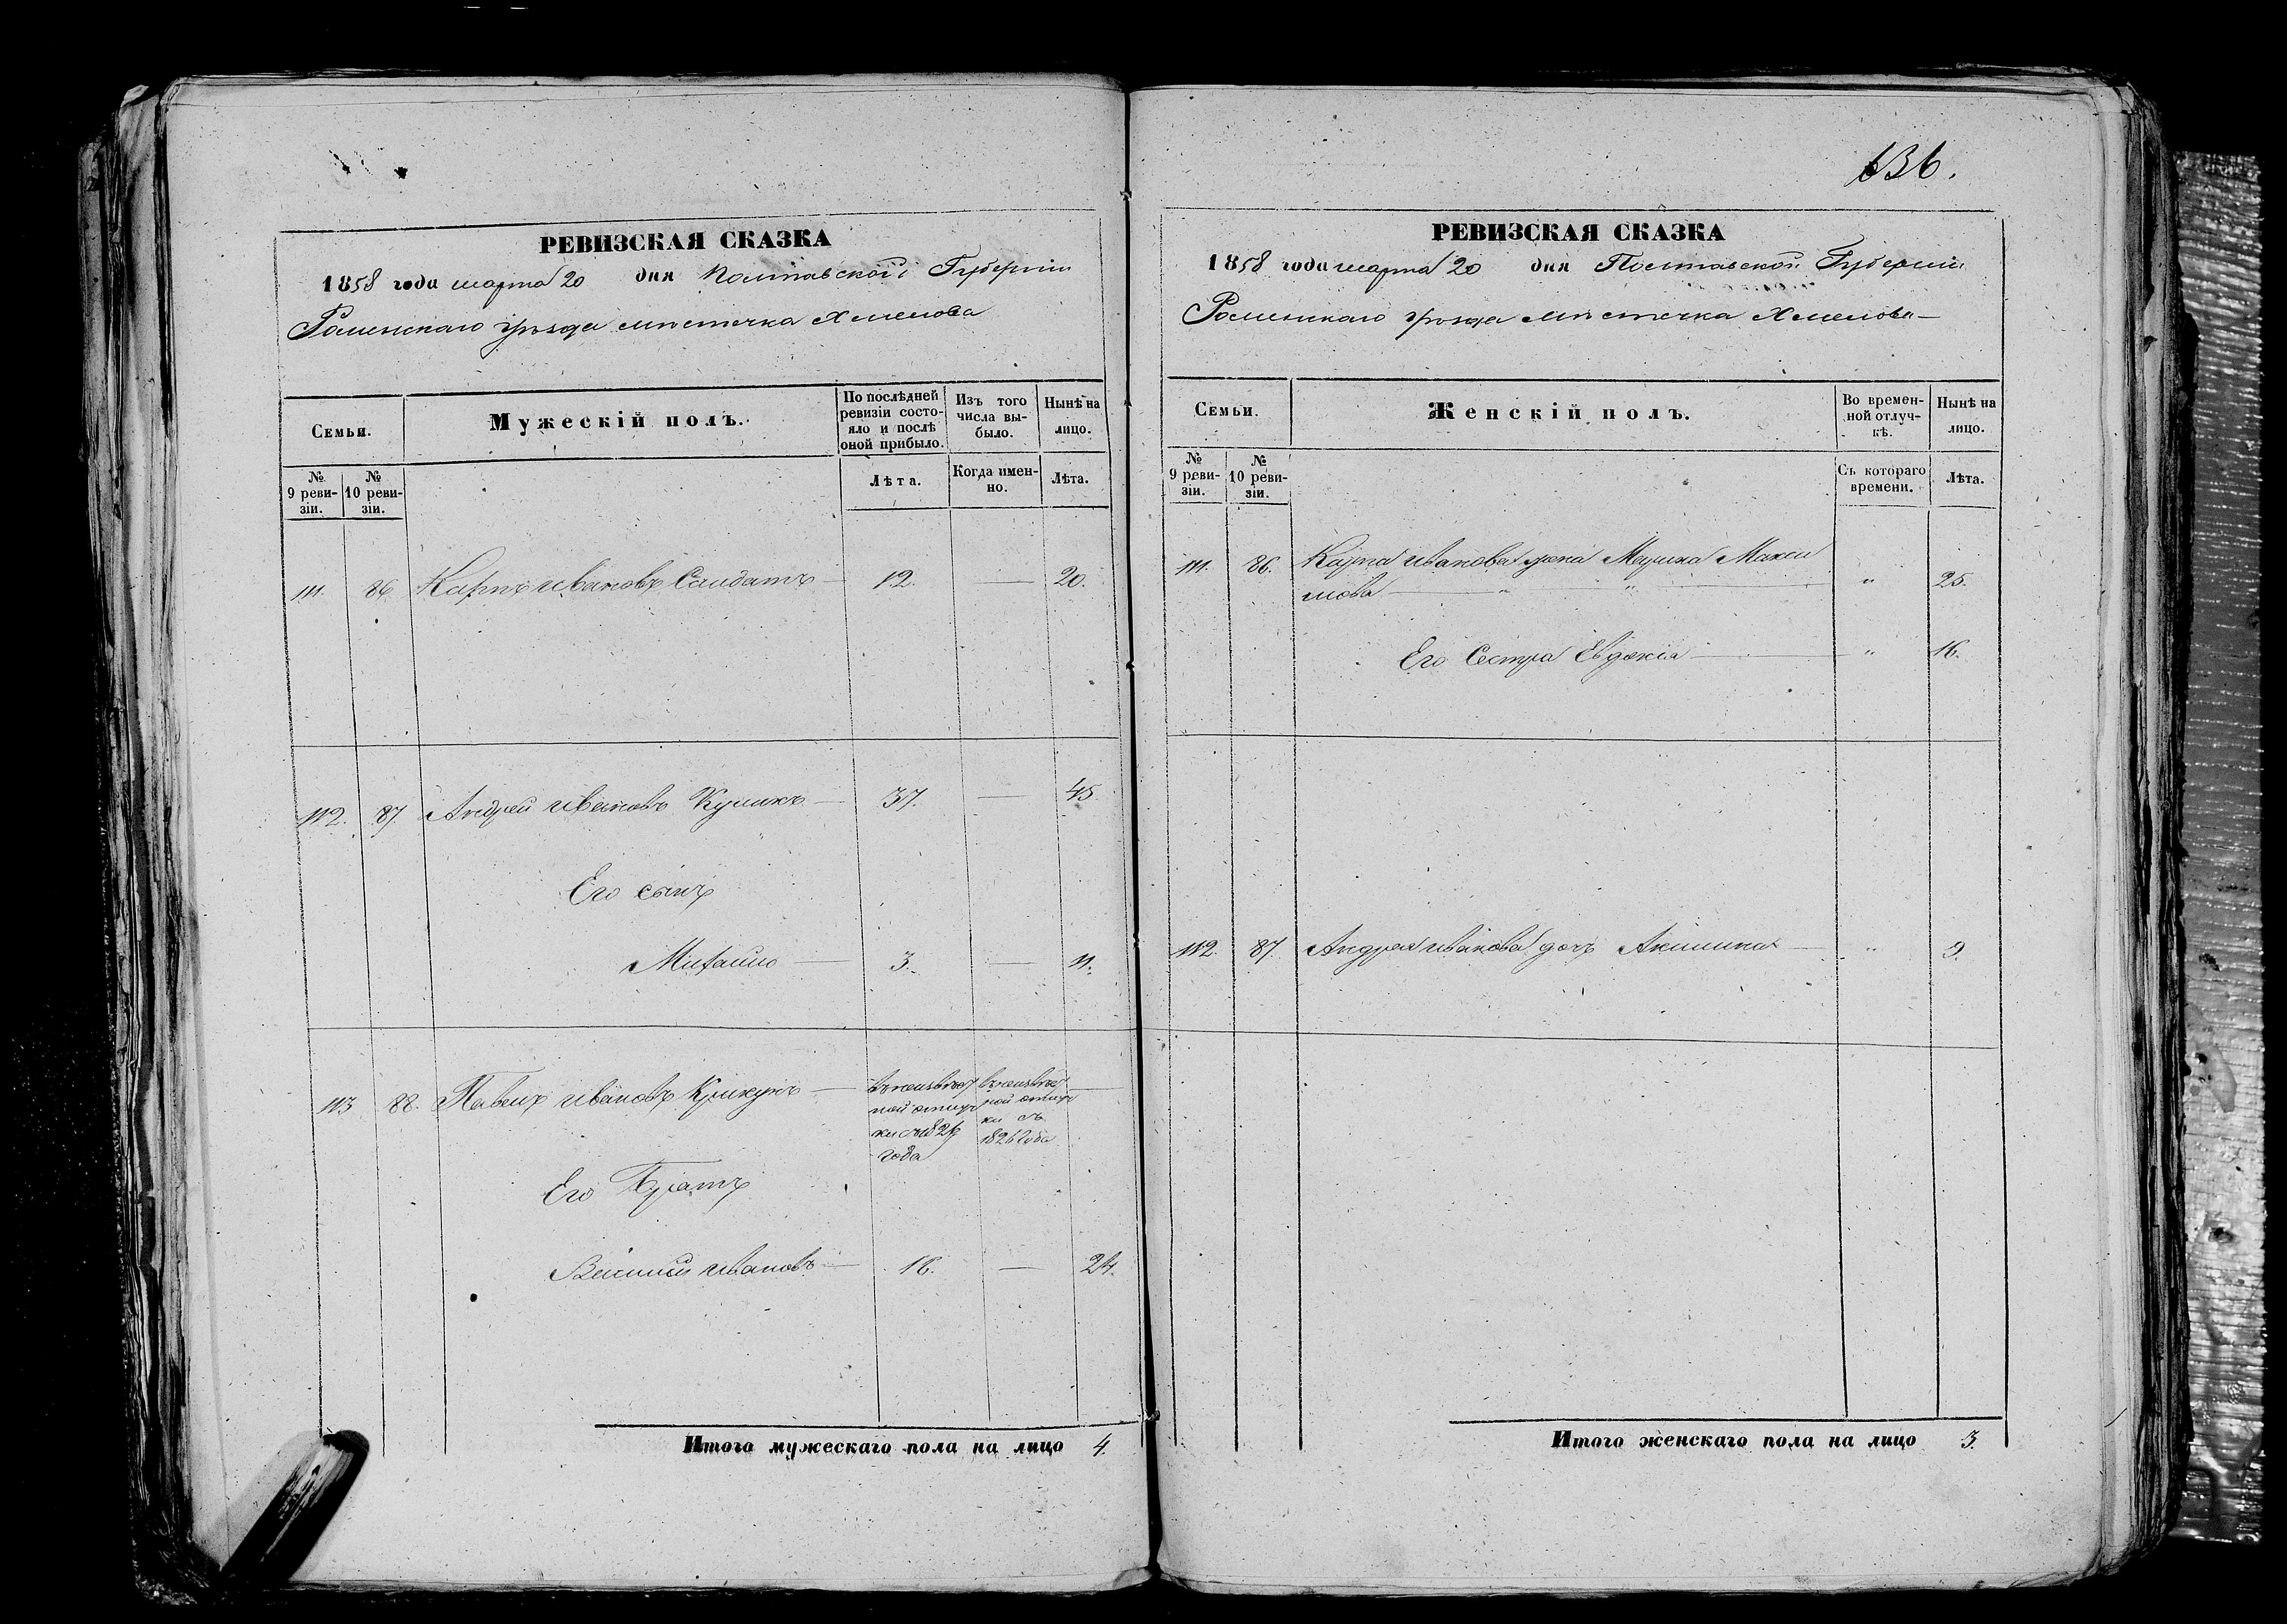 636.
РЕВИЗСКАЯ СКАЗКА
1858 года марта 20 дня Полтавской Губерніи
Роменскаго уѣзда мѣстечка Хмелова
Семьи.
Мужескій полъ.
По послѣдней ревизіи состояло и послѣ оной прибыло.
Изъ того числа выбыло.
Нынѣ на лицо.
№ 9 ревизіи.
№ 10 ревизіи.
Лѣта.
Когда именно.
Лѣта.
111. 86 Карпъ Ивановъ Солдатъ — 12. — 20.
112. 87. Андрей Ивановъ Куликъ — 37. — 45.
Его сынъ
Михайло — 3. — 11.
113 88. Павелъ Ивановъ Крикунъ —
года
ки съ
1826 года
Его Братъ
Василій Ивановъ — 16. — 24.
Итого мужескаго пола на лицо 4.
РЕВИЗСКАЯ СКАЗКА
1858 года марта 20 дня Полтавской Губерніи
Роменскаго уѣзда мѣстечка Хмелова —
Семьи.
Женскій полъ.
Во временной отлучкѣ.
Нынѣ на лицо.
№ 9 ревизіи.
№ 10 ревизіи.
Съ котораго времени.
Лѣта.
111. 86. Карпа Иванова жена Марина Макси
мова — „ — „ — „ 25.
Его Сестра Евдокія — „ 16.
112. 87. Андрея Иванова дочь Акилина — „ 9.
Итого женскаго пола на лицо 3.